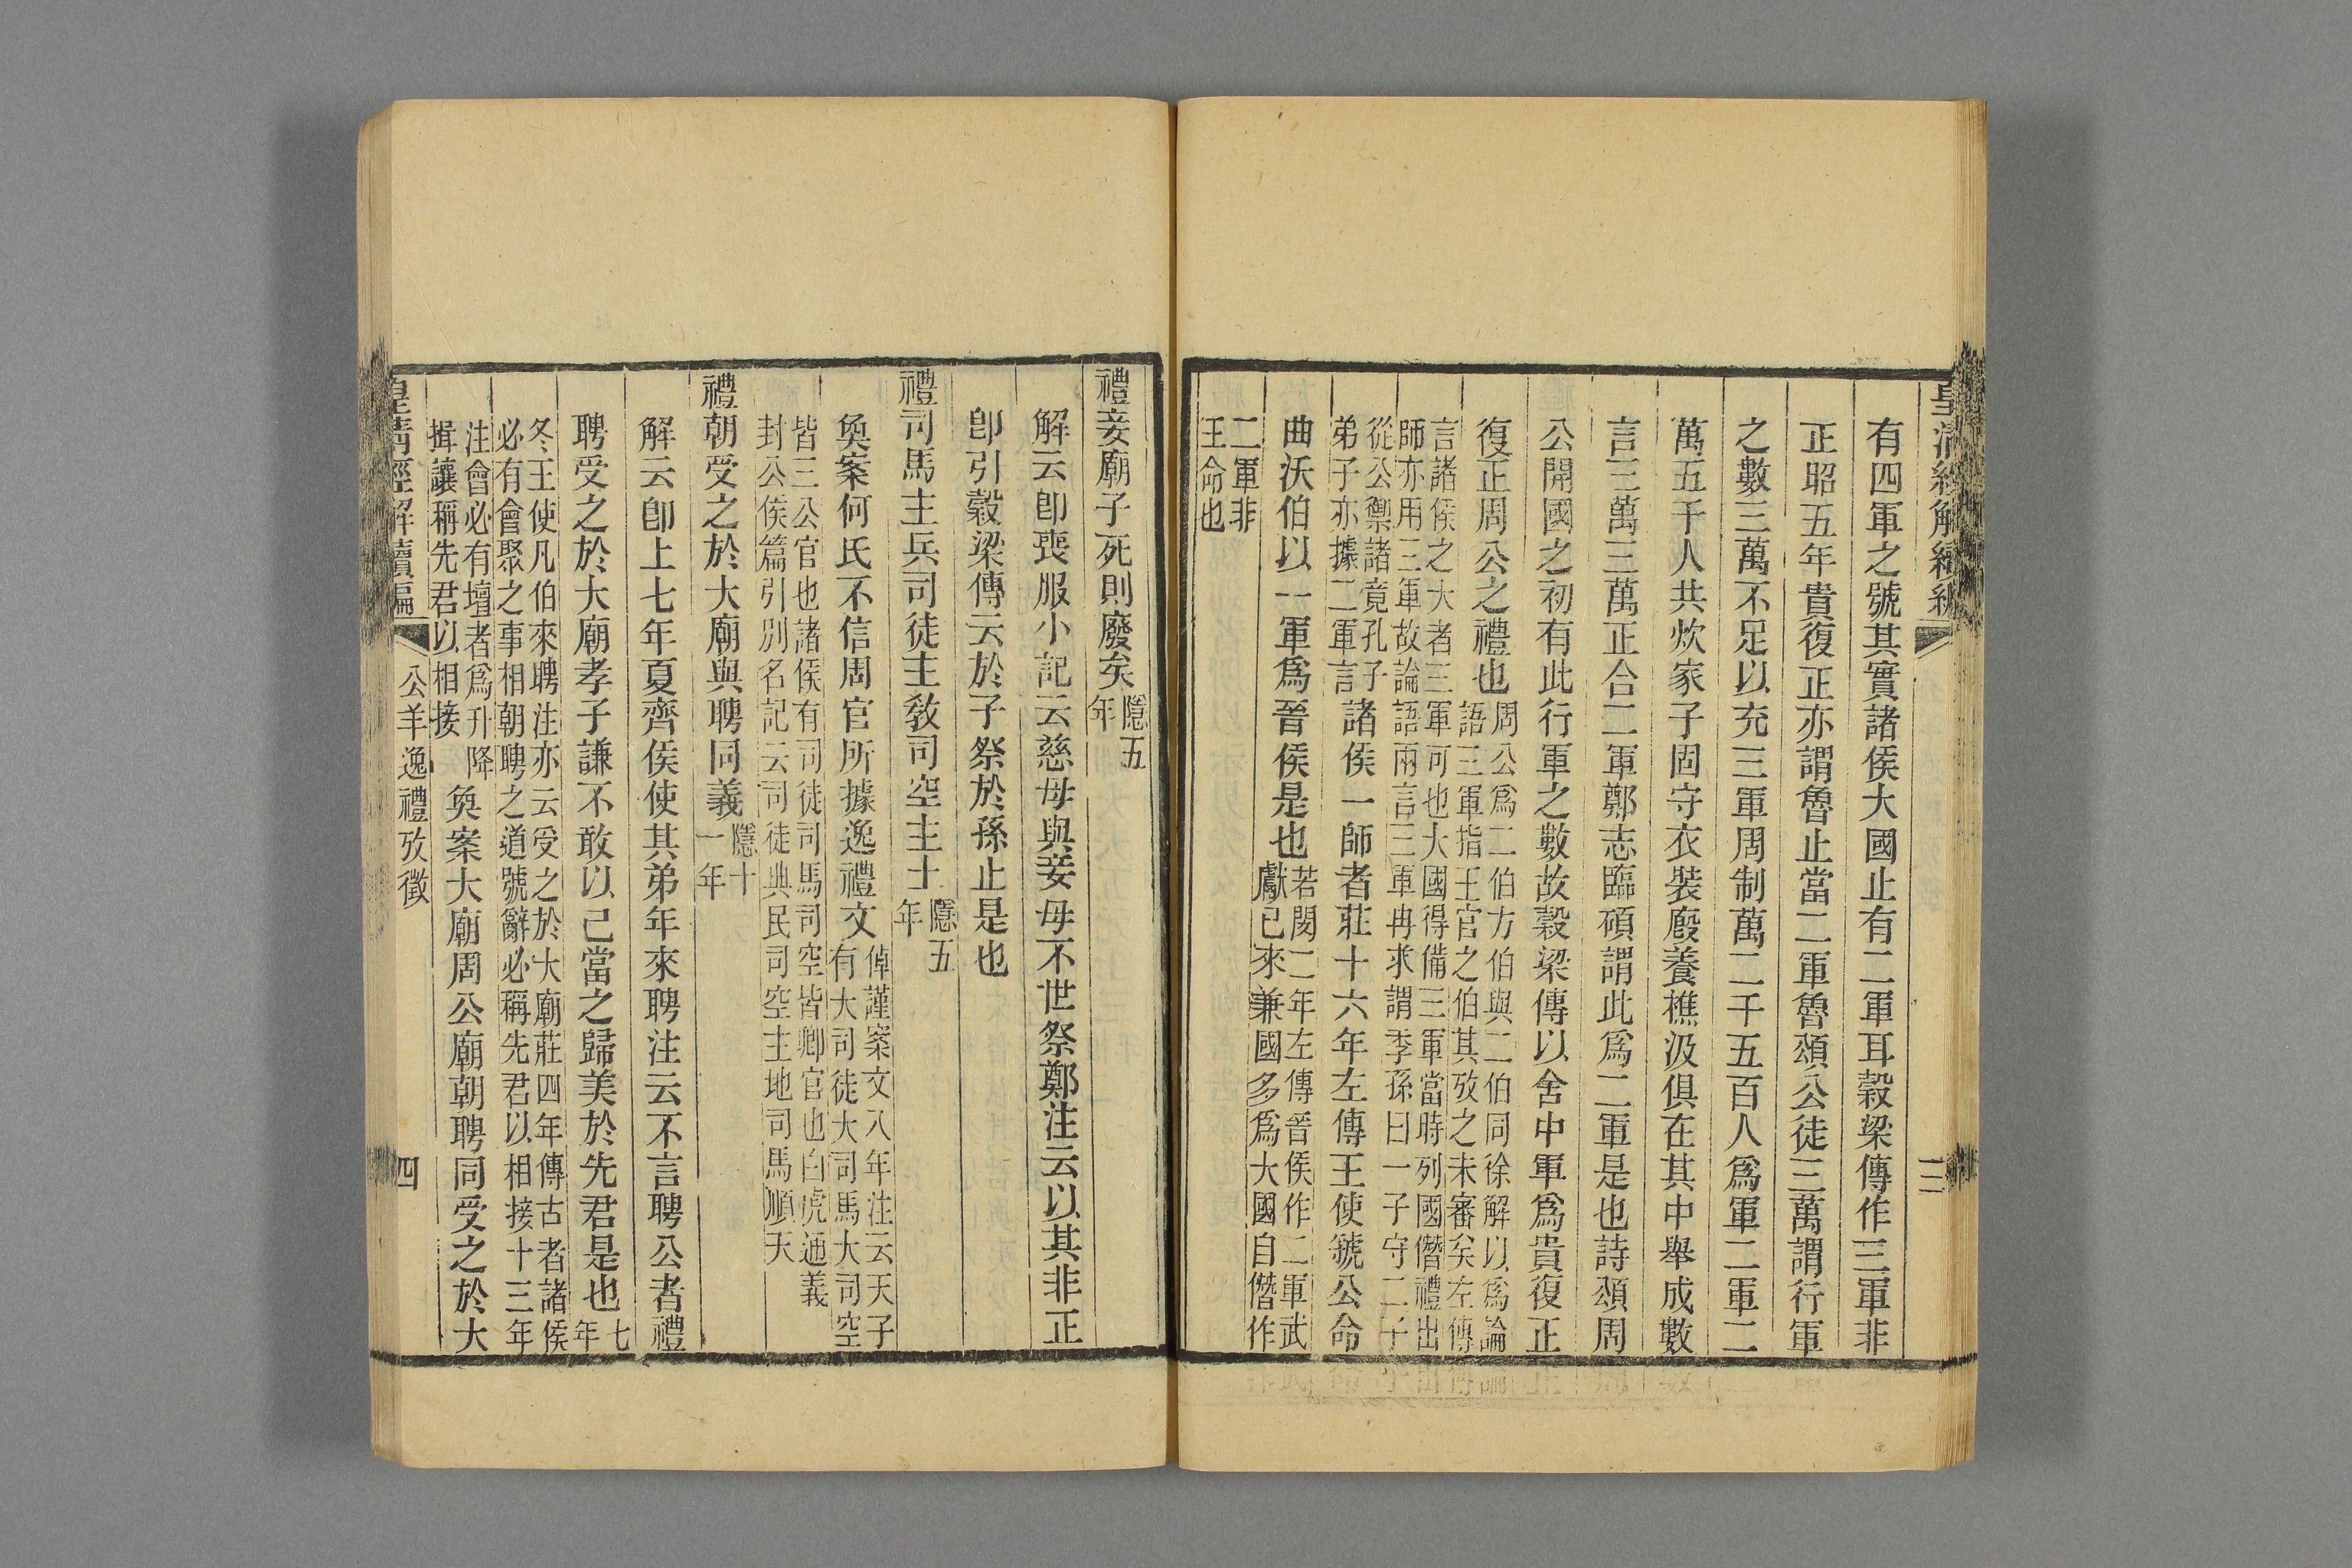 皇清經解續編
三
有四軍之號其實諸侯大國止有二軍耳穀梁傳作三軍非
正昭五年貴復正亦謂魯止當二軍魯頌公徒三萬謂行軍
之數三萬不足以充三軍周制萬二千五百人爲軍二軍二
萬五千人共炊家子固守衣裝廏養樵汲俱在其中舉成數
言三萬三萬正合二軍鄭志臨碩謂此爲二軍是也詩頌周
公開國之初有此行軍之數故穀梁傳以舍中軍爲貴復正
復正周公之禮也
周公爲二伯方伯與二伯同徐解以爲論
語三軍指王官之伯其攷之未審矣左傳
言諸侯之大者三軍可也大國得備三軍當時列國僭禮出
師亦用三軍故論語兩言三軍冉求謂季孫曰一子守二子
從公禦諸竟孔子
弟子亦據二軍言
諸侯一師者莊十六年左傳王使虢公命
曲沃伯以一軍爲晉侯是也
若閔二年左傳晉侯作二軍武
獻已來兼國多爲大國自僭作
二軍非
王命也
禮妾廟子死則廢矣
隱五
年
解云卽喪服小記云慈母與妾母不世祭鄭注云以其非正
卽引穀梁傳云於子祭於孫止是也
禮司馬主兵司徒主敎司空主土
隱五
年
奐案何氏不信周官所據逸禮文
倬謹案文八年注云天子
有大司徒大司馬大司空
皆三公官也諸侯有司徒司馬司空皆卿官也白虎通義
封公侯篇引別名記云司徒典民司空主地司馬順天
禮朝受之於大廟與聘同義
隱十
一年
解云卽上七年夏齊侯使其弟年來聘注云不言聘公者禮
聘受之於大廟孝子謙不敢以己當之歸美於先君是也
七
年
冬王使凡伯來聘注亦云受之於大廟莊四年傳古者諸侯
必有會聚之事相朝聘之道號辭必稱先君以相接十三年
注會必有壇者爲升降
揖讓稱先君以相接
奐案大廟周公廟朝聘同受之於大
皇淸經解續編
公羊逸禮攷徵
四